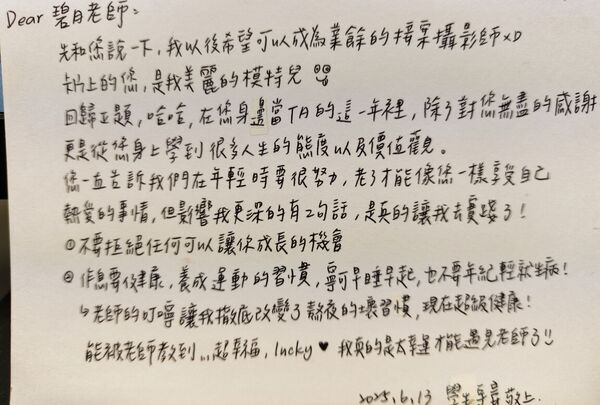 Dear 碧月老師：
先和您說一下，我以後希望可以成為業餘的接案攝影師xD
卡片上的您，是我美麗的模特兒
回歸正題，哈哈，在您身邊當TA的這一年裡，除了對您無盡的感謝
更是從您身上學到很多人生的態度以及價值觀。
您一直告訴我們在年輕時要很努力，老了才能像您一樣享受自己
熱愛的事情，但影響我更深的有2句話，是真的讓我去實踐了！
①不要拒絕任何可以讓你成長的機會
②作息要健康，養成運動的習慣，寧可早睡早起，也不要年紀輕就生病！
老師的叮嚀讓我徹底改變了熬夜的壞習慣，現在超級健康！
能被老師教到...超幸福，lucky ♥ 我真的是太幸運才能遇見老師了!!
2025.6.13 學生 敬上.